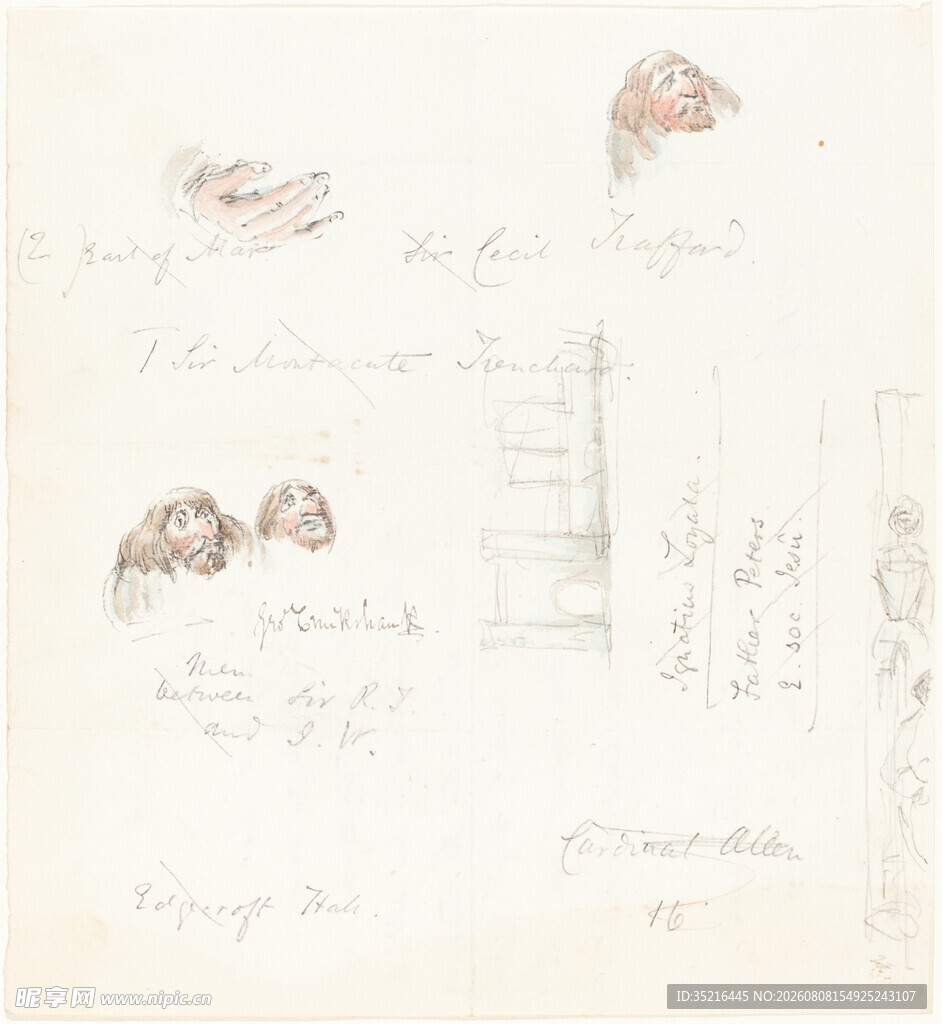 (2 Earl of Mar
Sir Cecil Trafford.
T Sir Montacute Trenchard.
Ignatius Loyala.
Father Peters.
soc. Jesu.
Geo Cruikshank.
Men
between Sir R. T.
and J. W.
Cardinal Allen
16
Edgecroft Hall.
昵享网 www.nipic.cn
ID:35216445 NO:20260808154925243107